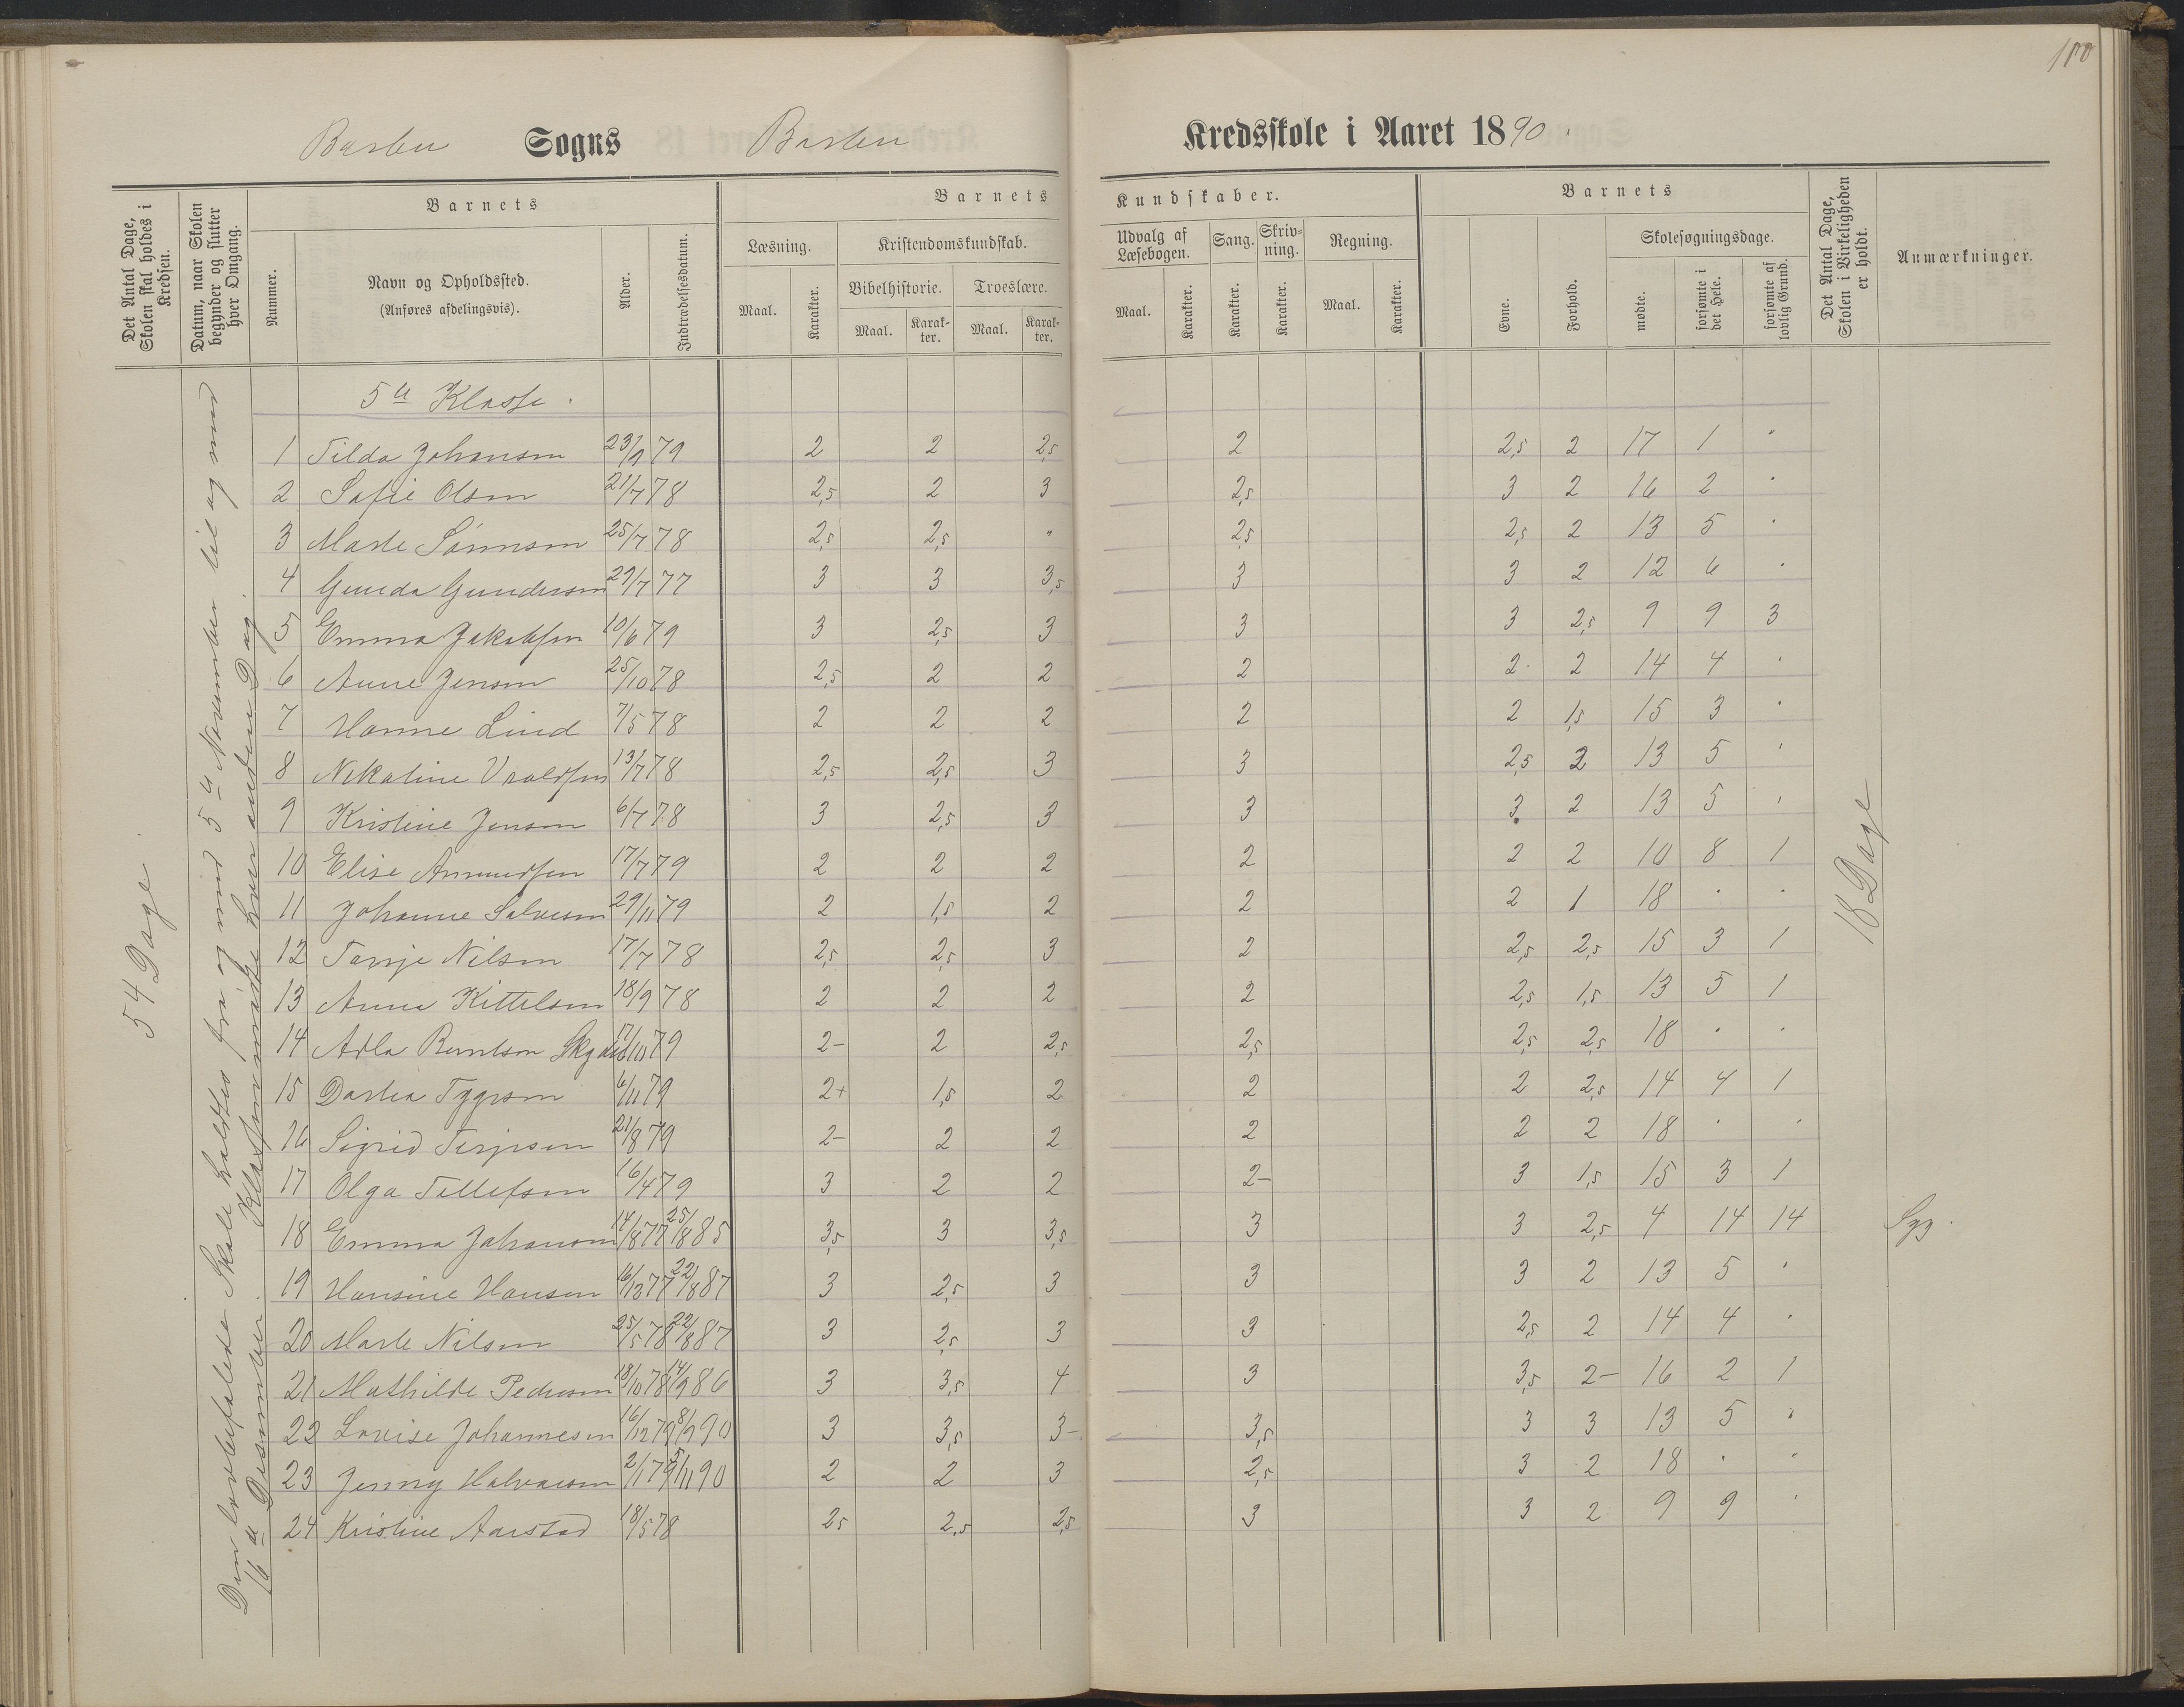 100
Barbu Sogns Barbu Kredsskole i Aaret 1890.
Det Antal Dage, Skolen skal holdes i Kredsen.
Datum, naar Skolen begynder og slutter hver Omgang.
Barnets
Nummer.
Navn og Opholdssted.
(Anføres afdelingsvis).
Alder.
Indtrædelsesdatum.
Barnets Kundskaber.
Læsning.
Maal. Karakter.
Kristendomskundskab.
Bibelhistorie. Troeslære.
Maal. Karakter. Maal. Karakter.
Udvalg af Læsebogen.
Maal. Karakter.
Sang. Karakter.
Skrivning. Karakter.
Regning.
Maal. Karakter.
Barnets
Evne. Forhold.
Skolesøgningsdage.
mødte. forsømte i det Hele. forsømte af lovlig Grund.
Det Antal Dage, Skolen i Virkeligheden er holdt.
Anmærkninger.
54 Dage.
Den lovbefalede Skole holdtes fra og med 5te November til og med
16de Desember. Klassen mødte hver anden Dag.
5te Klasse.
1 Tilda Johansen 23/9 79 2 2 2,5 2 2,5 2 17 1 "
2 Sofie Olsen 21/7 78 2,5 2 3 2,5 3 2 16 2 "
3 Marte Sørensen 25/7 78 2,5 2,5 " 2,5 2,5 2 13 5 "
4 Gunda Gundersen 29/7 77 3 3 3,5 3 3 2 12 6 "
5 Emma Jakobsen 10/6 79 3 2,5 3 3 3 2,5 9 9 3
6 Anne Jensen 25/10 78 2,5 2 2 2 2 2 14 4 "
7 Hanne Lind 7/5 78 2 2 2 2 2 1,5 15 3 "
8 Nikoline Vraldsen 13/7 78 2,5 2,5 3 3 2,5 2 13 5 "
9 Kristine Jensen 6/7 78 3 2,5 3 3 3 2 13 5 "
10 Elise Amundsen 17/7 79 2 2 2 2 2 2 10 8 1
11 Johanne Salvesen 29/11 79 2 1,5 2 2 2 1 18 " "
12 Tomje Nilsen 17/7 78 2,5 2,5 3 2 2,5 2,5 15 3 1
13 Anna Kittelsen 18/9 78 2 2 2 2 2,5 1,5 13 5 1
14 Adla Berntsen 17/10 79 2- 2 2,5 2,5 2,5 2,5 18 " "
15 Dorthea 6/11 79 2+ 1,5 2 2 2 2,5 14 4 1
16 Sigrid Terjesen 21/8 79 2- 2 2 2 2 2 18 " "
17 Olga Tellefsen 16/4 79 3 2 2 2- 3 1,5 15 3 1
18 Emma Johansen 14/8 77 25/8 85 3,5 3 3,5 3 3 2,5 4 14 14 Syg.
19 Hansine Hansen 16/12 77 22/8 87 3 2,5 3 3 3 2 13 5 "
20 Marte Nilsen 25/5 78 22/8 87 3 2,5 3 3 2,5 2 14 4 "
21 Mathilde Pedersen 18/10 78 14/9 86 3 3,5 4 3 3,5 2- 16 2 1
22 Lovise Johannesen 16/12 79 8/9 90 3 3,5 3- 3,5 3 3 13 5 "
23 Jenny Halvorsen 2/1 79 5/11 90 2 2 3 2,5 3 2 18 " "
24 Kristine Aarstad 18/5 78 2,5 2,5 2,5 3 3 2 9 9 "
18 Dage